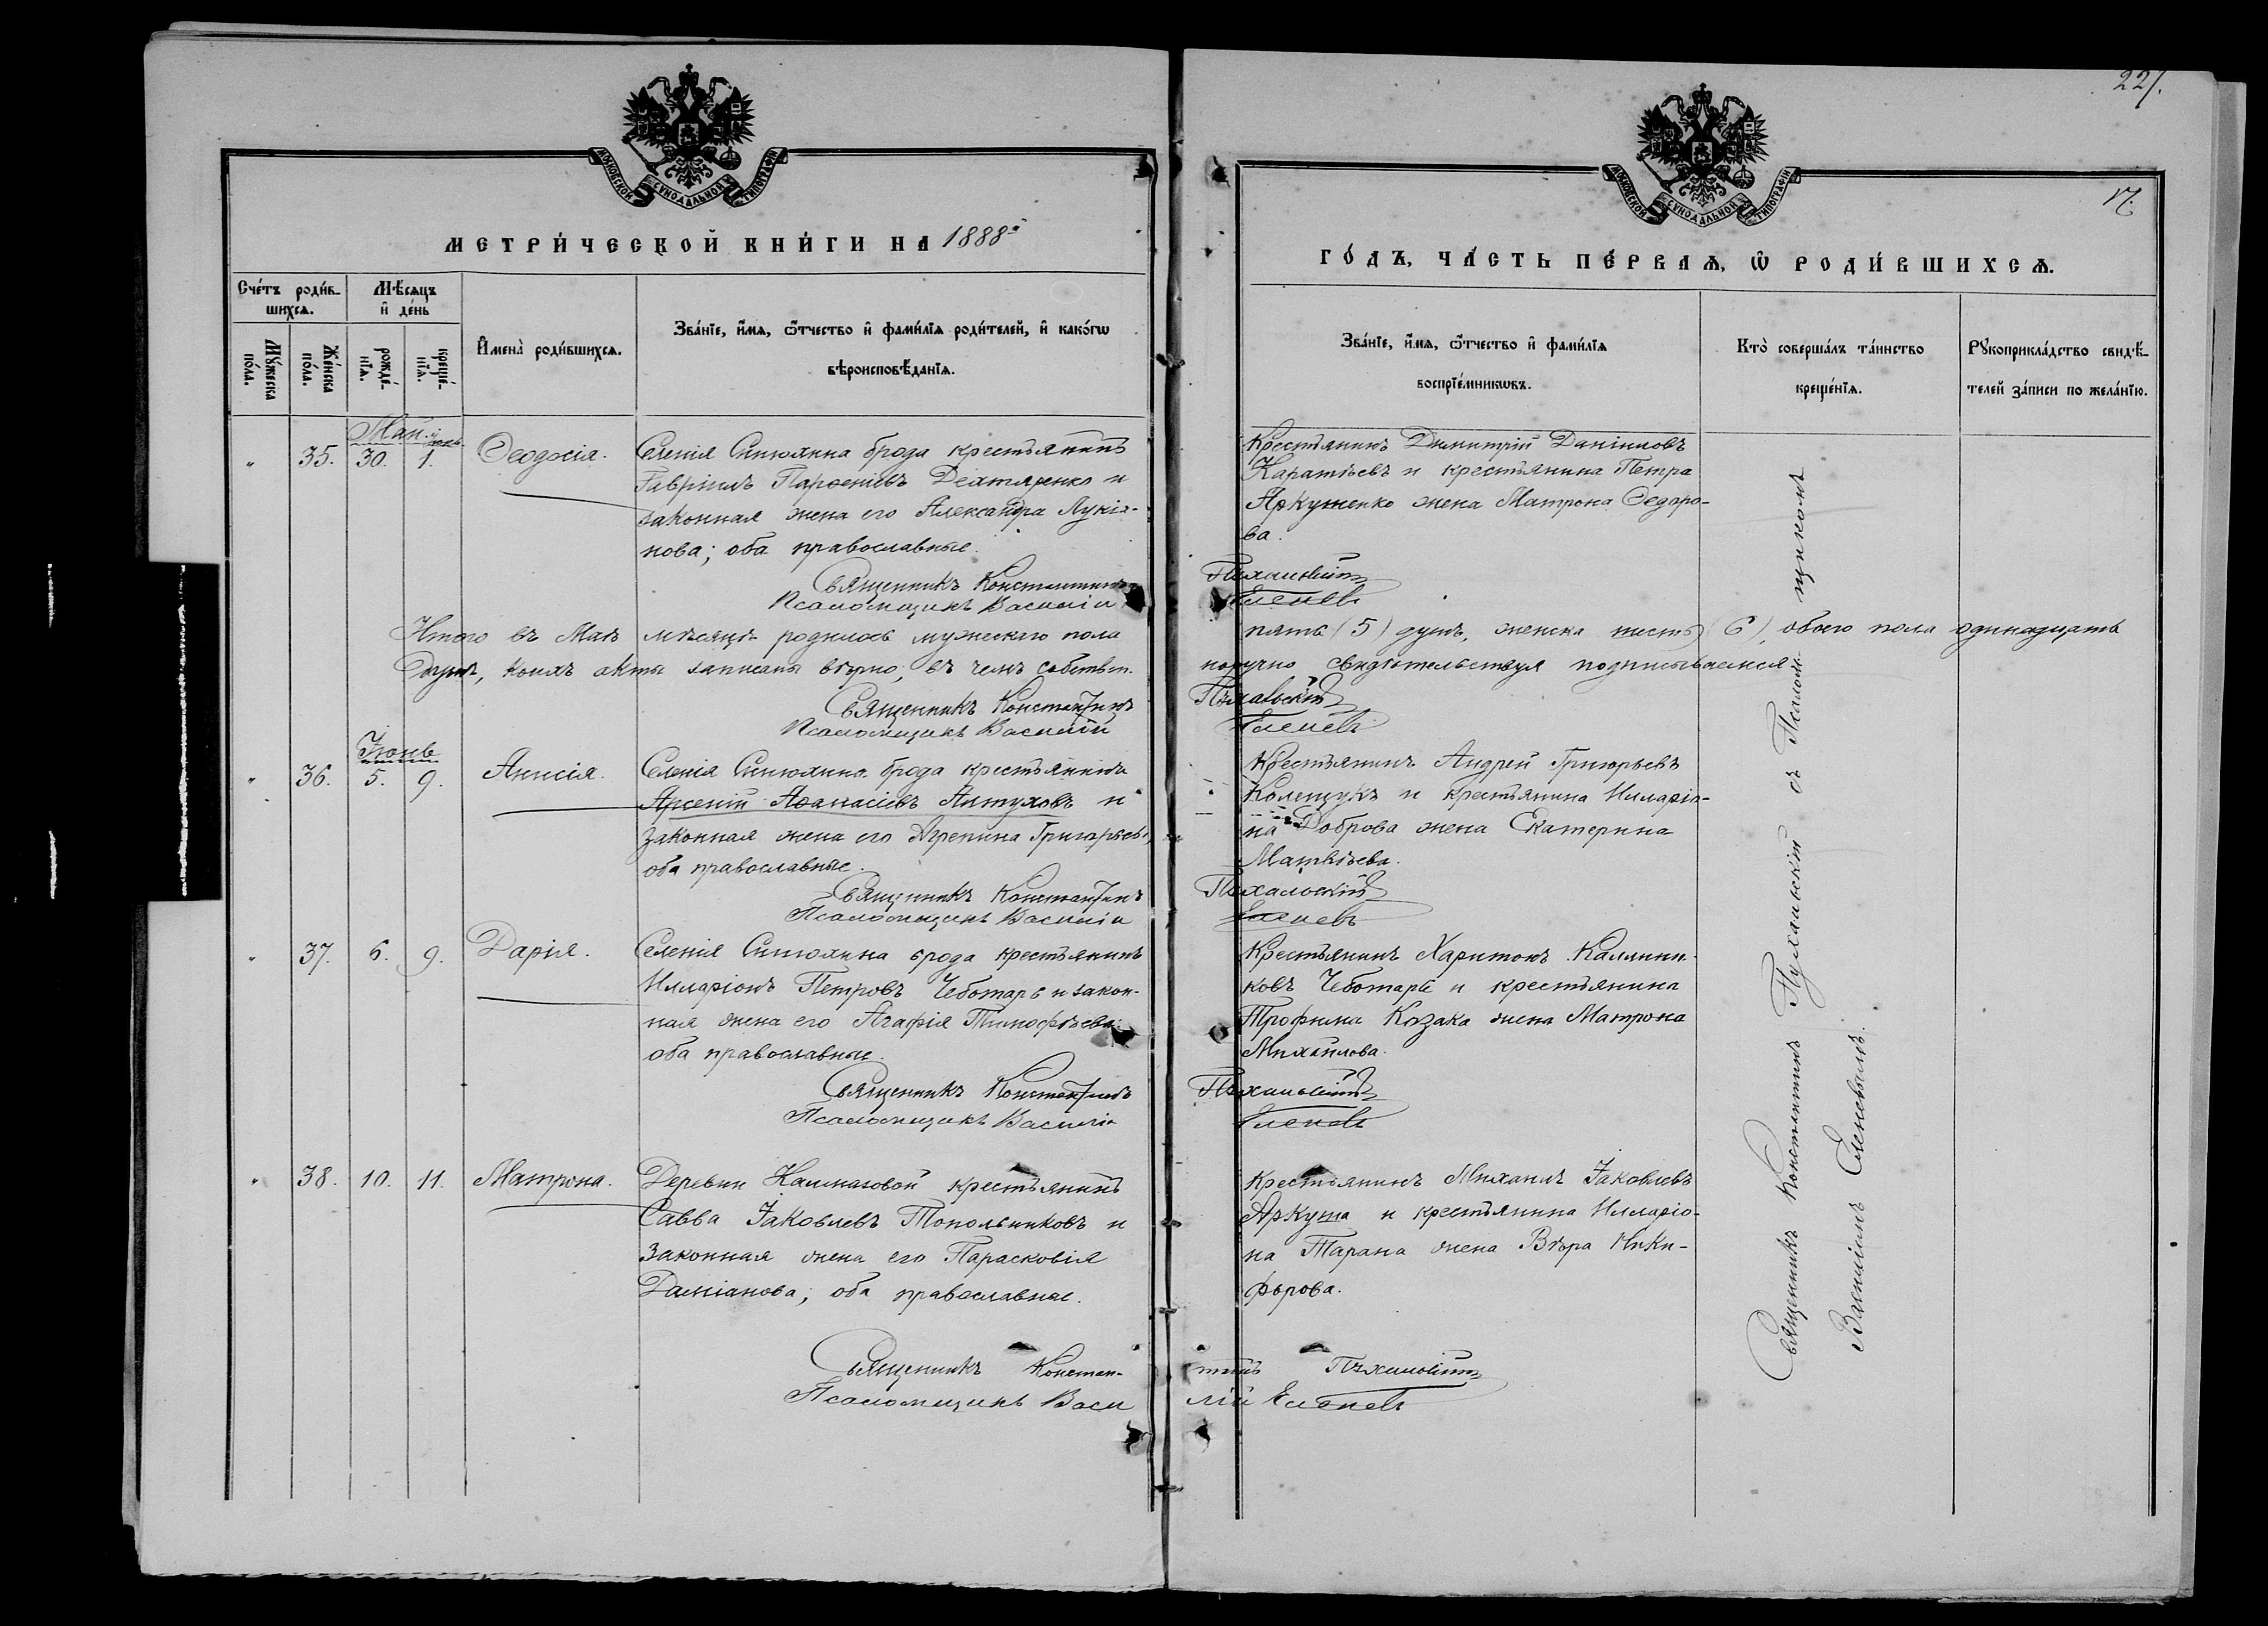 221.
17.
МОСКОВСКОЙ СѴНОДАЛЬНОЙ ТИПОГРАФІИ
МЕТРИ́ЧЕСКОЙ КНИ́ГИ НА 1888й
Сче́тъ роди́в-
шихсѧ.
Мѣ́сѧцъ
и҆ де́нь
Мꙋ́жеска
по́ла.
Же́нска
по́ла.
рожде́-
нїѧ.
креще́-
нїѧ.
И҆мена̀ роди́вшихсѧ.
Зва́нїе, и҆́мѧ, ѻ҆́тчество и҆ фами́лїѧ роди́телей, и҆ како́гѡ
вѣроисповѣ́данїѧ.
Май. Іюнь.
" 35. 30. 1. Ѳеодосія. Селенія Синюхина брода крестьянинъ
Гавріилъ Парѳеніевъ Дехтяренко и
законная жена его Александра Лукія-
нова; оба православные.
Священникъ Константинъ
Псаломщикъ Василій
Итого въ Маѣ мѣсяцѣ родилось мужескаго пола
душъ, коихъ акты записаны вѣрно, въ чемъ собствен.
Священникъ Константинъ
Псаломщикъ Василій
Іюнь
" 36. 5. 9. Анисія. Селенія Синюхина брода крестьянинъ
Арсеній Аѳанасіевъ Антуховъ и
законная жена его Агрепина Григорьева,
оба православные.
Священникъ Константинъ
Псаломщикъ Василій
" 37. 6. 9. Дарія. Селенія Синюхина брода крестьянинъ
Илларіонъ Петровъ Чеботарь и закон-
ная жена его Агафія Тимофѣева;
оба православные.
Священникъ Константинъ
Псаломщикъ Василій
" 38. 10. 11. Матрона. Деревни Калмазовой крестьянинъ
Савва Іаковлевъ Топольниковъ и
законная жена его Парасковія
Даміанова; оба православные.
Священникъ Констан-
Псаломщикъ Васи
МОСКОВСКОЙ СѴНОДАЛЬНОЙ ТИПОГРАФІИ
ГО́ДЪ, ЧА́СТЬ ПЕ́РВАѦ, Ѡ҆ РОДИ́ВШИХСѦ.
Зва́нїе, и҆́мѧ, ѻ҆́тчество и҆ фами́лїѧ
воспрїе́мникѡвъ.
Кто̀ соверша́лъ та́инство
креще́нїѧ.
Рꙋкоприкла́дство свидѣ́-
телей за́писи по жела́нїю.
Крестьянинъ Димитрій Даніиловъ
Каратѣевъ и крестьянина Петра
Аркушенко жена Матрона Ѳедоро-
ва.
Пухальскій
Еленевъ
пять (5) душъ, женска шесть (6), обоего пола одинадцать
норучно свидѣтельствуя подписываемся
Пухальскій
Еленевъ
Крестьянинъ Андрей Григорьевъ
Колещукъ и крестьянина Илларіо-
на Доброва жена Екатерина
Матвѣева.
Пухальскій
Еленевъ
Крестьянинъ Харитонъ Каллини-
ковъ Чеботарь и крестьянина
Трофима Козака жена Матрона
Михаилова.
Пухальскій
Еленевъ
Крестьянинъ Михаилъ Іаковлевъ
Аркуша и крестьянина Илларіо-
на Тарана жена Вѣра Ники-
форова.
тинъ Пухальскій
лій Еленевъ
Священникъ Константинъ Пухальскій съ Псаломщикомъ
Василіемъ Еленевымъ.